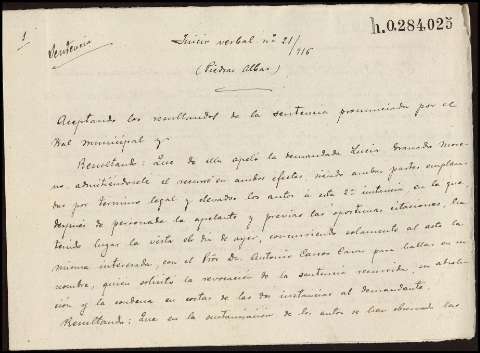 1
h.0.284.025
Sentencia
Juicio verbal nº 21/916
(Piedras Albas)
Aceptando los resultandos de la sentencia pronunciada por el
tral municipal y
Resultando: Que de ella apeló la demandada Lucía Granado More-
no, admitiéndosele el recurso en ambos efectos, siendo ambas partes emplaza-
das por término legal y elevados los autos á esta 2ª instancia, en la que,
después de personada la apelante y previas las oportunas citaciones, ha
tenido lugar la vista el día de ayer, concurriendo solamente al acto la
misma interesada, con el Pror. Dn. Antonio para hablar en su
nombre, quien solicitó la revocación de la sentencia recurrida, su absolu-
ción y la condena en costas de las dos instancias al demandante.
Resultando: Que en la sustanciación de los autos se han observado las